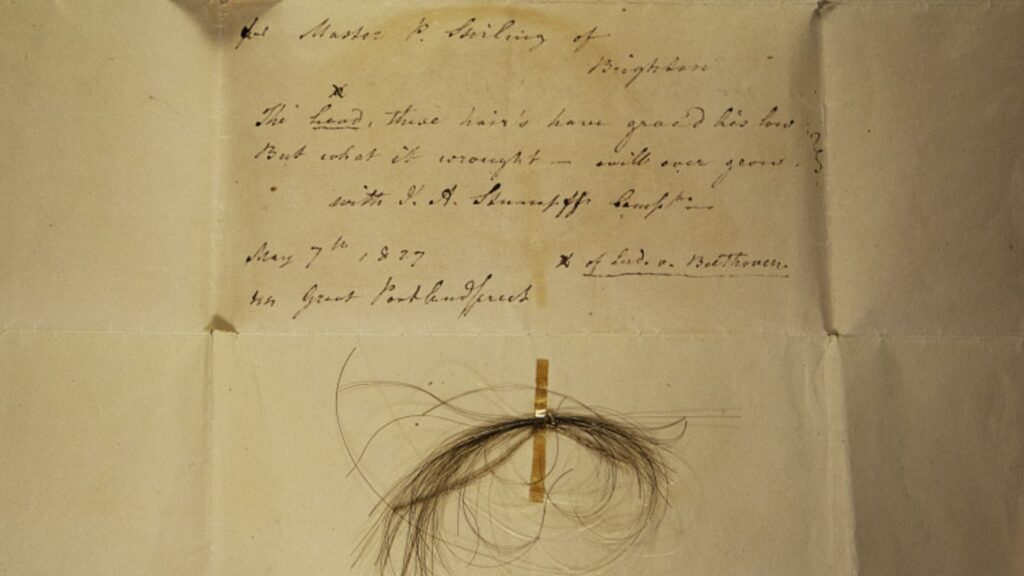 for Master P. Stirling of
Brighton
x
The head, these hair's have grac'd lies low
But what it wrought — will ever grow.
with J. A. Stumpff Compts —
May 7th, 1827
x of Ludv. v. Beethoven.
44 Great Portlandstreet